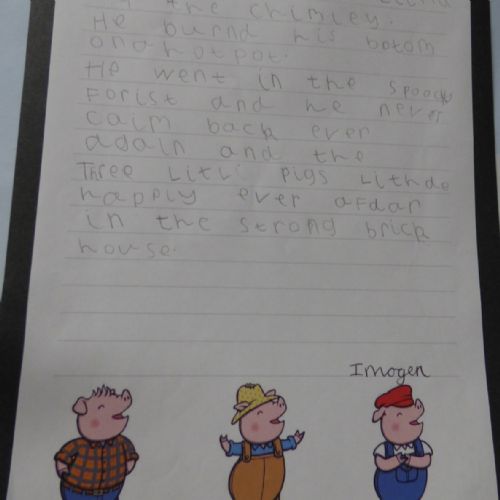 the chimley.
He burnd his botom
onahotpot.
He went in the spoock
Forist and he never
caim back ever
again and the
Three Litli pigs Lithde
happliy ever afdar
in the strong brick
house.
Imogen